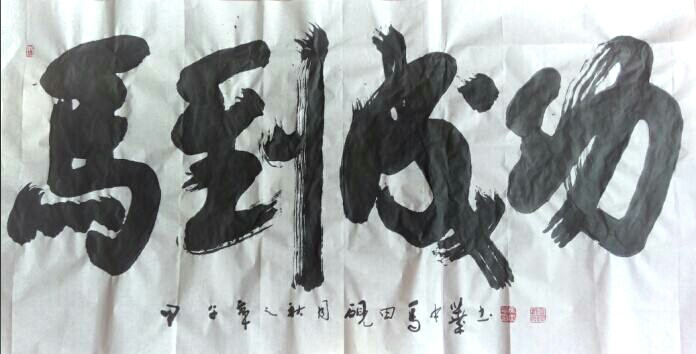 馬到成功
甲午年之秋月硯田馬中業書